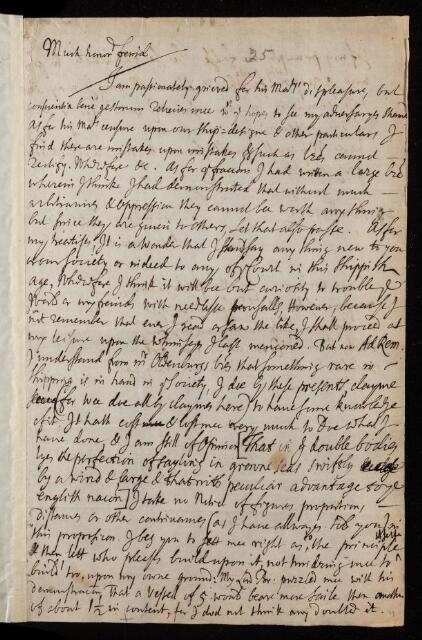 25
Much honord freind
I am passionately greived for his Ma:ties displeasure, but
conscientia bene gestorum releives mee & hopes to see my adversaryes shame
As for his Ma:ties censure upon our ship-designe & other particulars I
find there are mistakes upon mistakes & such as cannot
rectify. Wherefore &c. As for I had written a large
wherein I thinke I had demonstrated that without much
arbitrarines & Oppression they cannot bee worth any thing
but since they are given to others, Let that also passe. As for
my treatise, It is a wonder that I should say any thing new to you
or our Society or indeed to any of Court in this shippish
age, Wherefore I think it will bee but curiosity to trouble
or my freinds with needlesse However, because I
not remember that ever I read or saw the like, I shall proceed at
my leisure upon the I last mencioned. But now Ad Rem.
I understand from mr Oldenburgs that something rare in
shipping is in hand in ye Society, I doe by these presents clayme
(for wee doe all by claymes here) to have some knowledge
of it. It hath cost mee very much to doe what I
have done, & I am still of Opinion That in double bodies
lyes the perfection of sayling in seas swiftly
by a wind & large & that with peculiar advantage to ye
english nacon, I take no Notice of figures proportions
distances or other (as I have allwayes told you) in
this proposicon. I beg you to sett mee right as to the principle
& then lett who pleases build upon it, not hindring mee to
build too, upon my owne ground. My puzzled mee with his
demonstracon, That a vessel of 5 would beare more saile then another
of about 1½ in content, for I did not think any doubted it.